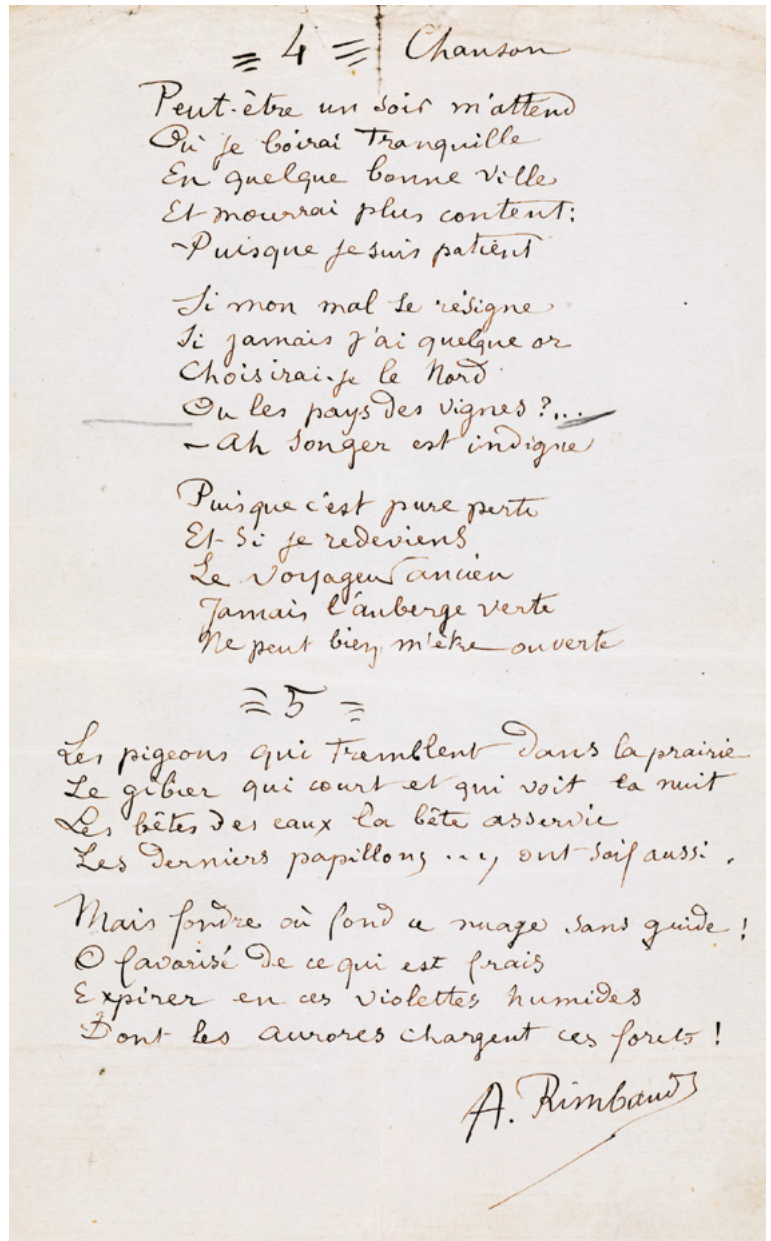 = 4 = Chanson
Peut-être un soir m'attend
Où je boirai tranquille
En quelque bonne ville
Et mourrai plus content:
-Puisque je suis patient
Si mon mal se résigne
Si jamais j'ai quelque or
Choisirai-je le Nord
Ou les pays des vignes?...
- Ah songer est indigne
Puisque c'est pure perte
Et si je redeviens
Le voyageur ancien
Jamais l'auberge verte
Ne peut bien m'être ouverte
= 5 =
Les pigeons qui tremblent dans la prairie
Le gibier qui court et qui voit la nuit
Les bêtes des eaux la bête asservie
Les derniers papillons ..., ont soif aussi.
Mais fondre où fond ce nuage sans guide!
O favorisé de ce qui est frais
Expirer en ces violettes humides
Dont les aurores chargent ces forets!
A. Rimbaud